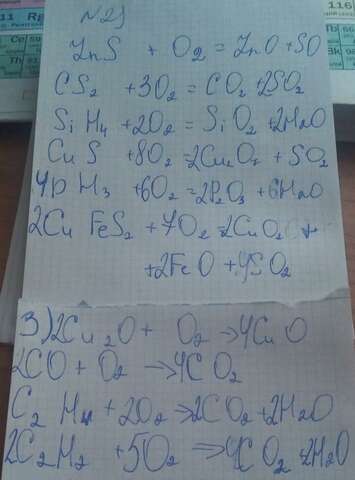 N 2)
ZnS + O₂ = ZnO + SO
CS₂ + 3O₂ = CO₂ + 2SO₂
SiH₄ + 2O₂ = SiO₂ + 2H₂O
CuS + 8O₂ = 2Cu₂O + SO₂
4PH₃ + 6O₂ = 2P₂O₃ + 6H₂O
2CuFeS₂ + 7O₂ = 2CuO₂ +
+ 2FeO + 4SO₂
3) 2Cu₂O + O₂ → 4CuO
2CO + O₂ → 4CO₂
C₂H₄ + 2O₂ → 2CO₂ + 2H₂O
2C₂H₂ + 5O₂ → 4CO₂ + 2H₂O